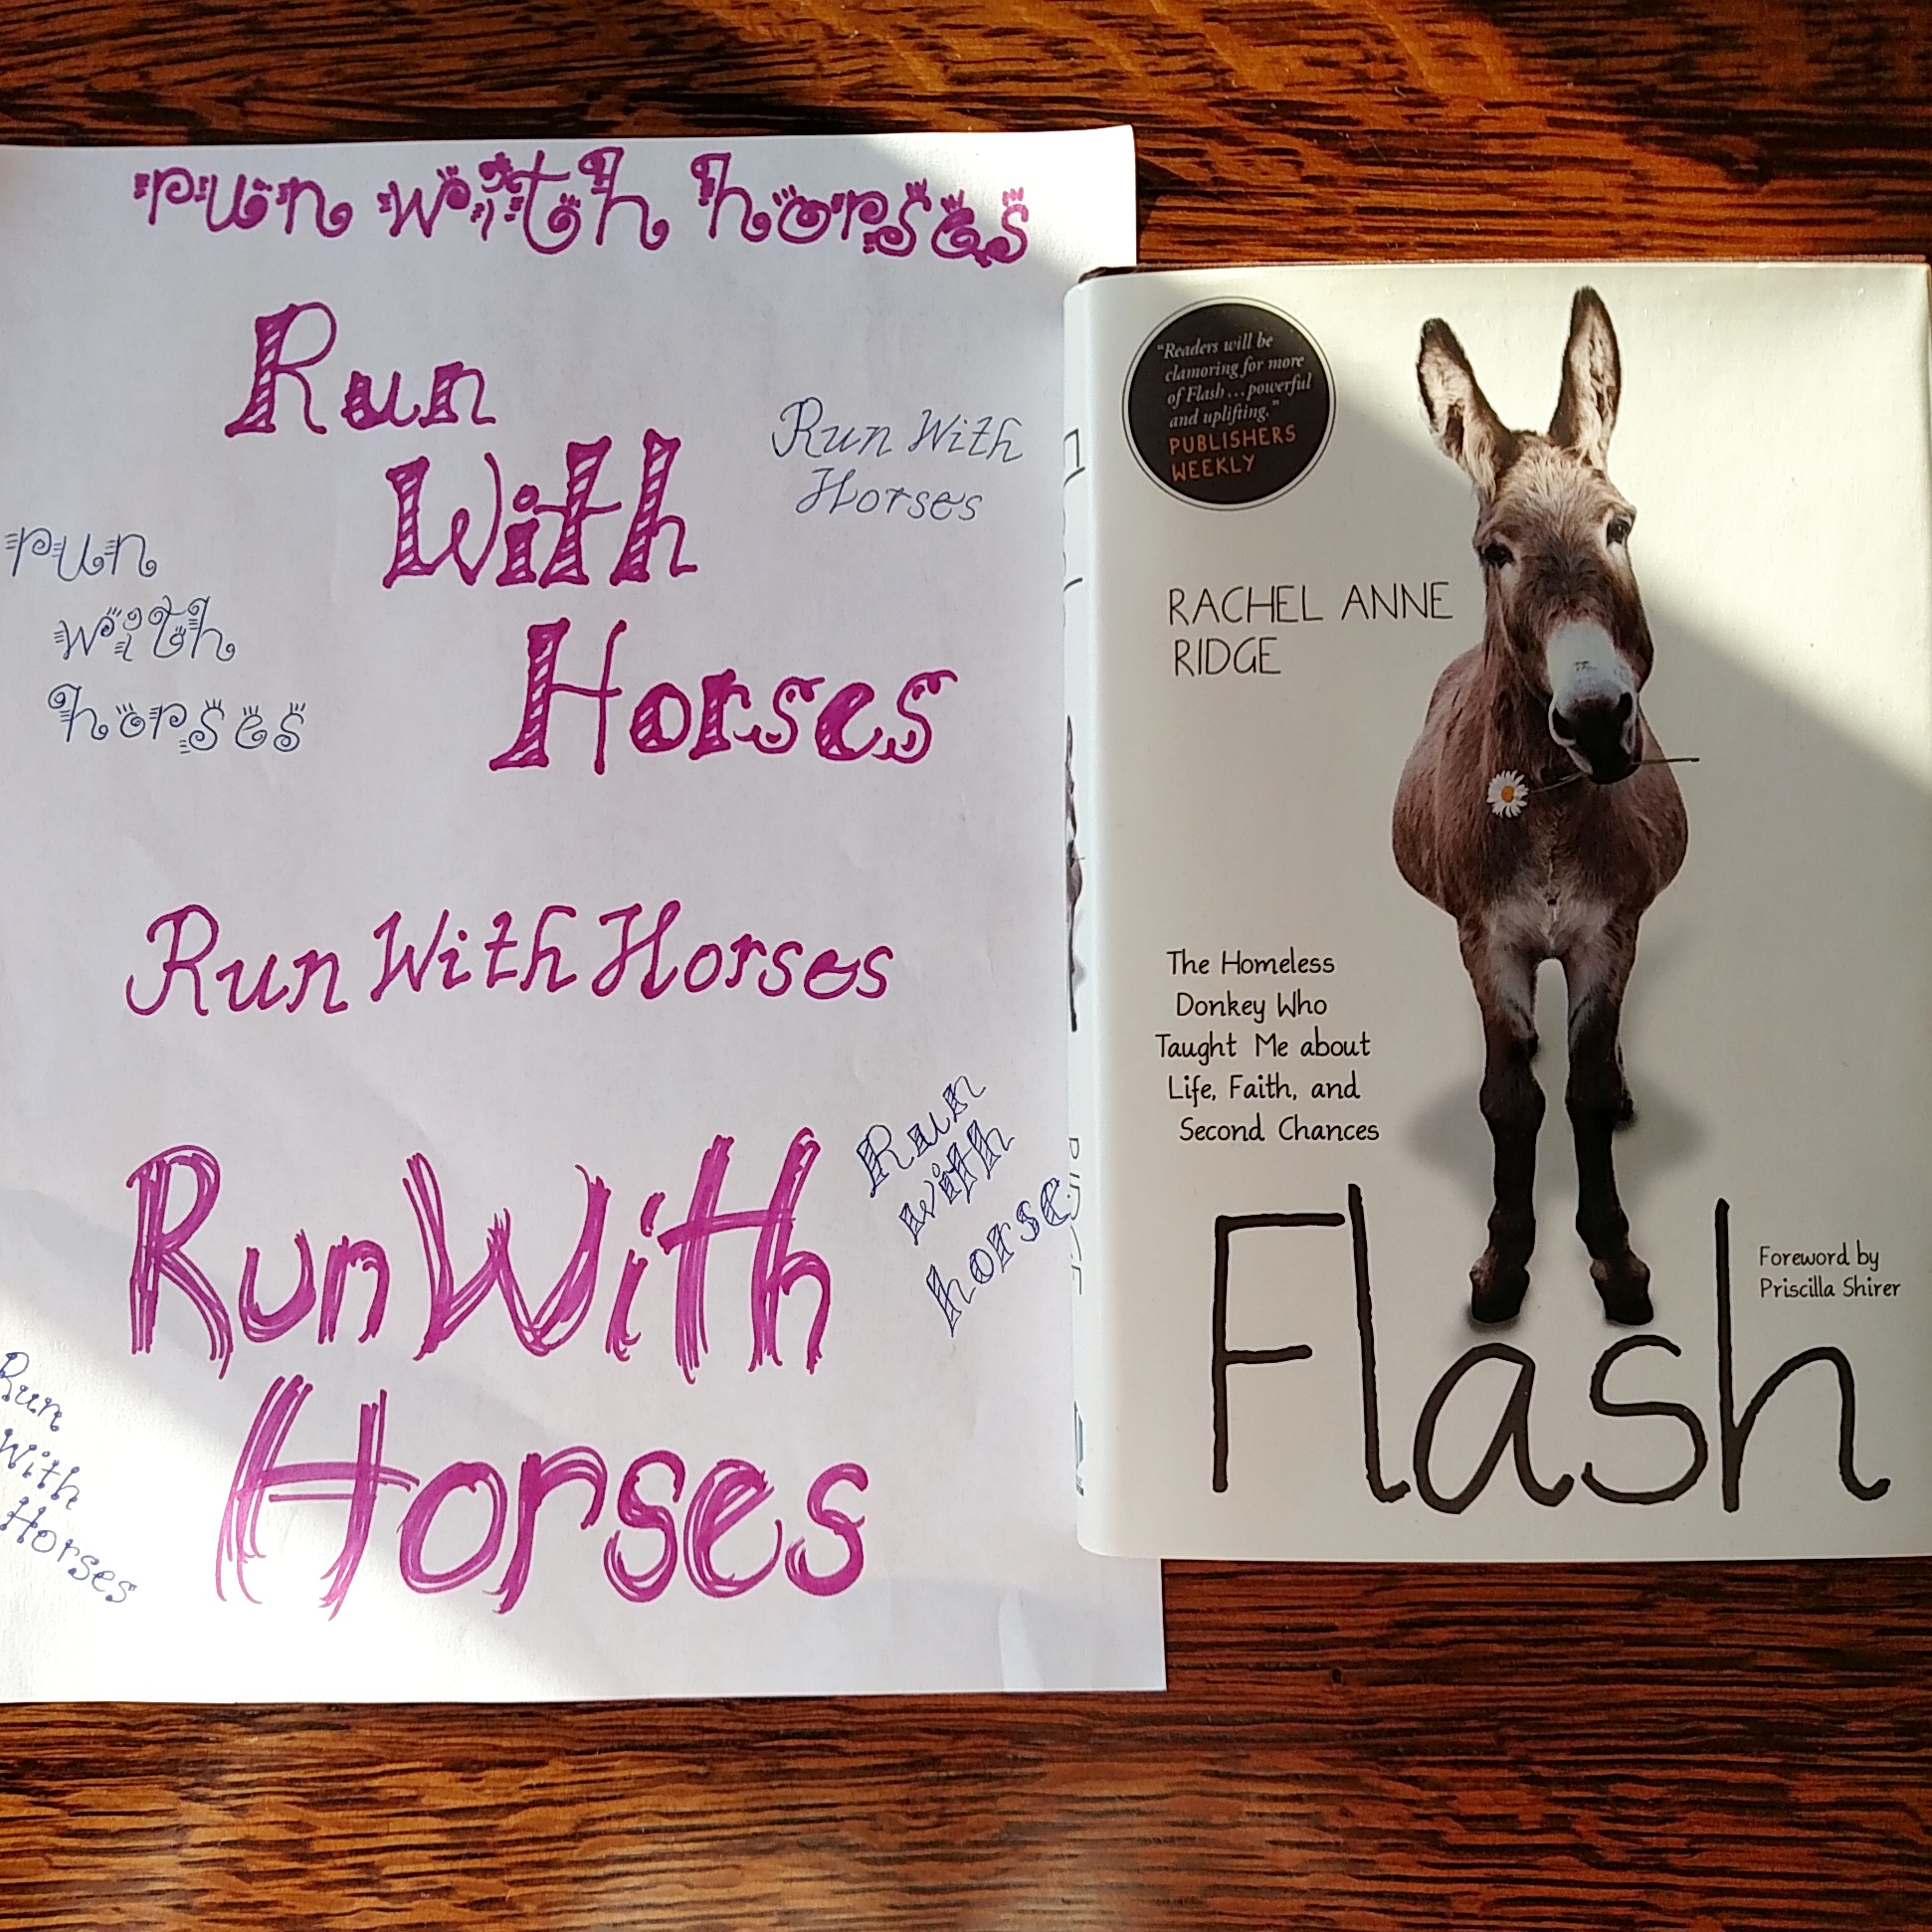 run with horses
Run
With
Horses
Run With
Horses
run
with
horses
Run With Horses
Run With
Horses
Run
with
horse
Run
With
Horses
"Readers will be
clamoring for more
of Flash...powerful
and uplifting."
PUBLISHERS
WEEKLY
RACHEL ANNE
RIDGE
The Homeless
Donkey Who
Taught Me about
Life, Faith, and
Second Chances
Flash
Foreword by
Priscilla Shirer